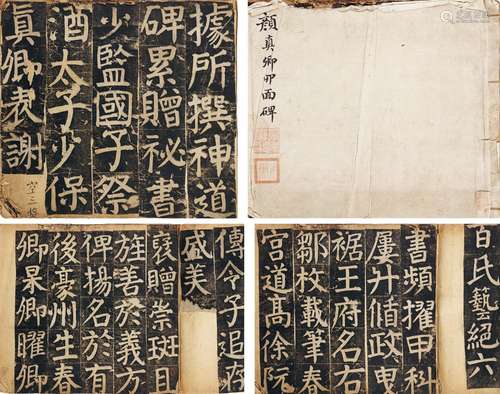 據所撰神道
碑累贈祕書
少監國子祭
酒太子少保
眞卿表謝
空三格
顏真卿四面碑
傳令子追存
盛美
褒贈崇班且
旌善於義方
俾揚名於有
後豪州生春
卿杲卿曜卿
百氏藝絕六
書頻擢甲科
屢升偱政曳
裾王府名右
鄒枚載筆春
宮道高徐阮